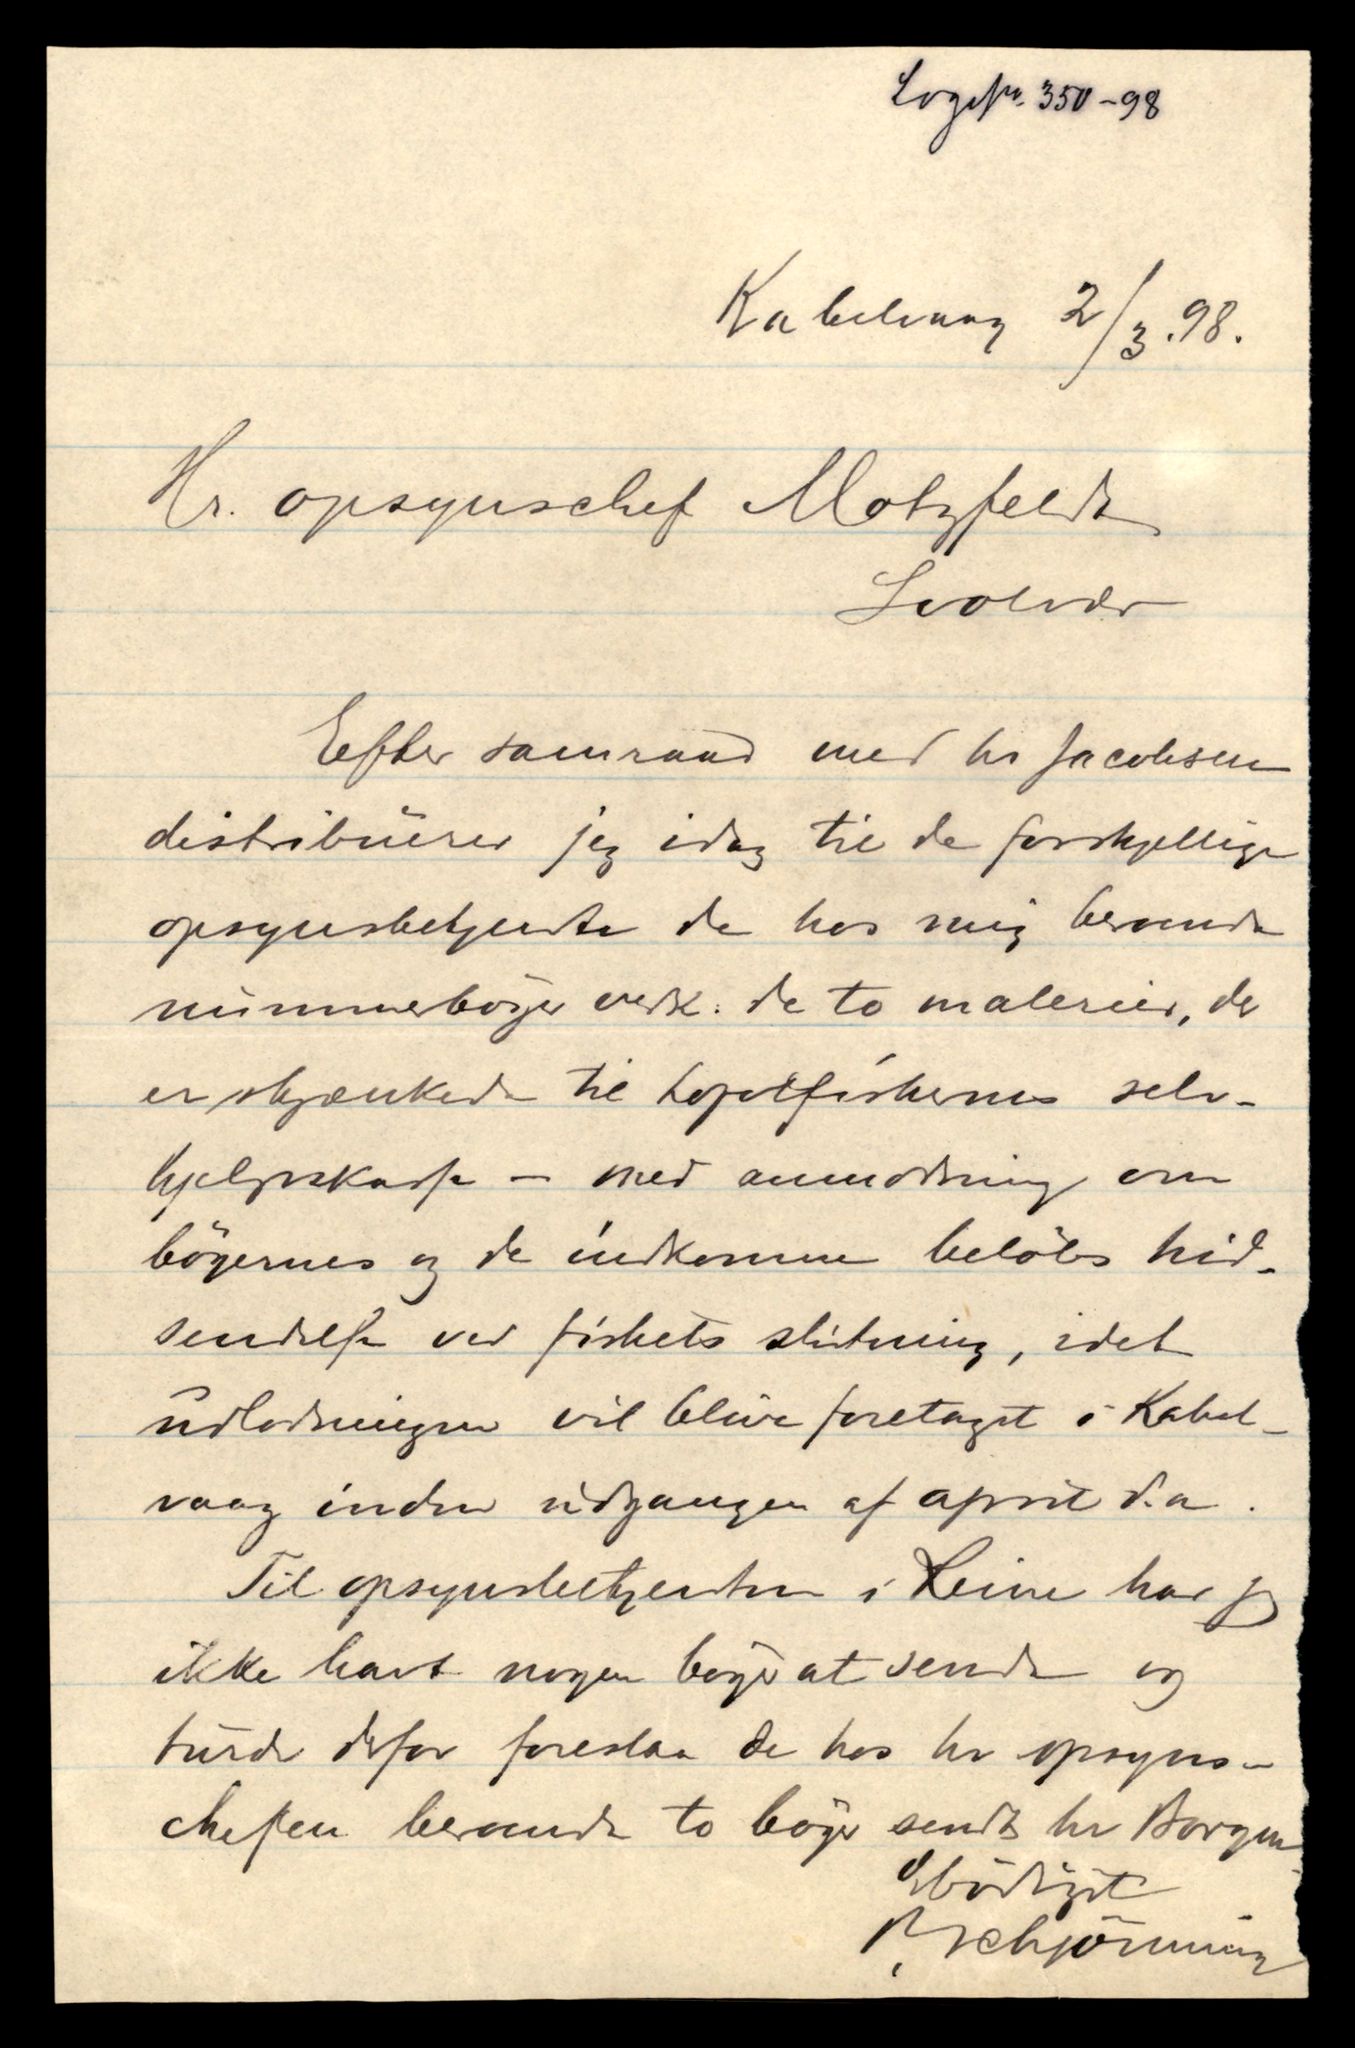 350-98
Kabelvaag 2/3.98.
Hr. opsynschef Motzfeldt
Svolvær
Efter samraad med hr Jacobsen
distribuerer jeg idag til de forskjellige
opsynsbetjente de hos mig beroende
nummerbøger vedk. de to malerier, der
er skjænkede til Lofotfiskernes selv-
hjelpskasse – med anmodning om
bøgernes og de indkomne beløbs hid-
sendelse ved fiskets slutning, idet
udlodningen vil blive foretaget i Kabel-
vaag inden udgangen af april d.a.
Til opsynsbetjenten i Reine har jeg
ikke havt nogen bøger at sende og
turde derfor foreslaa de hos hr opsyns-
chefen beroende to bøger sendt hr Borgen.
Ærbødigst
Schjønning